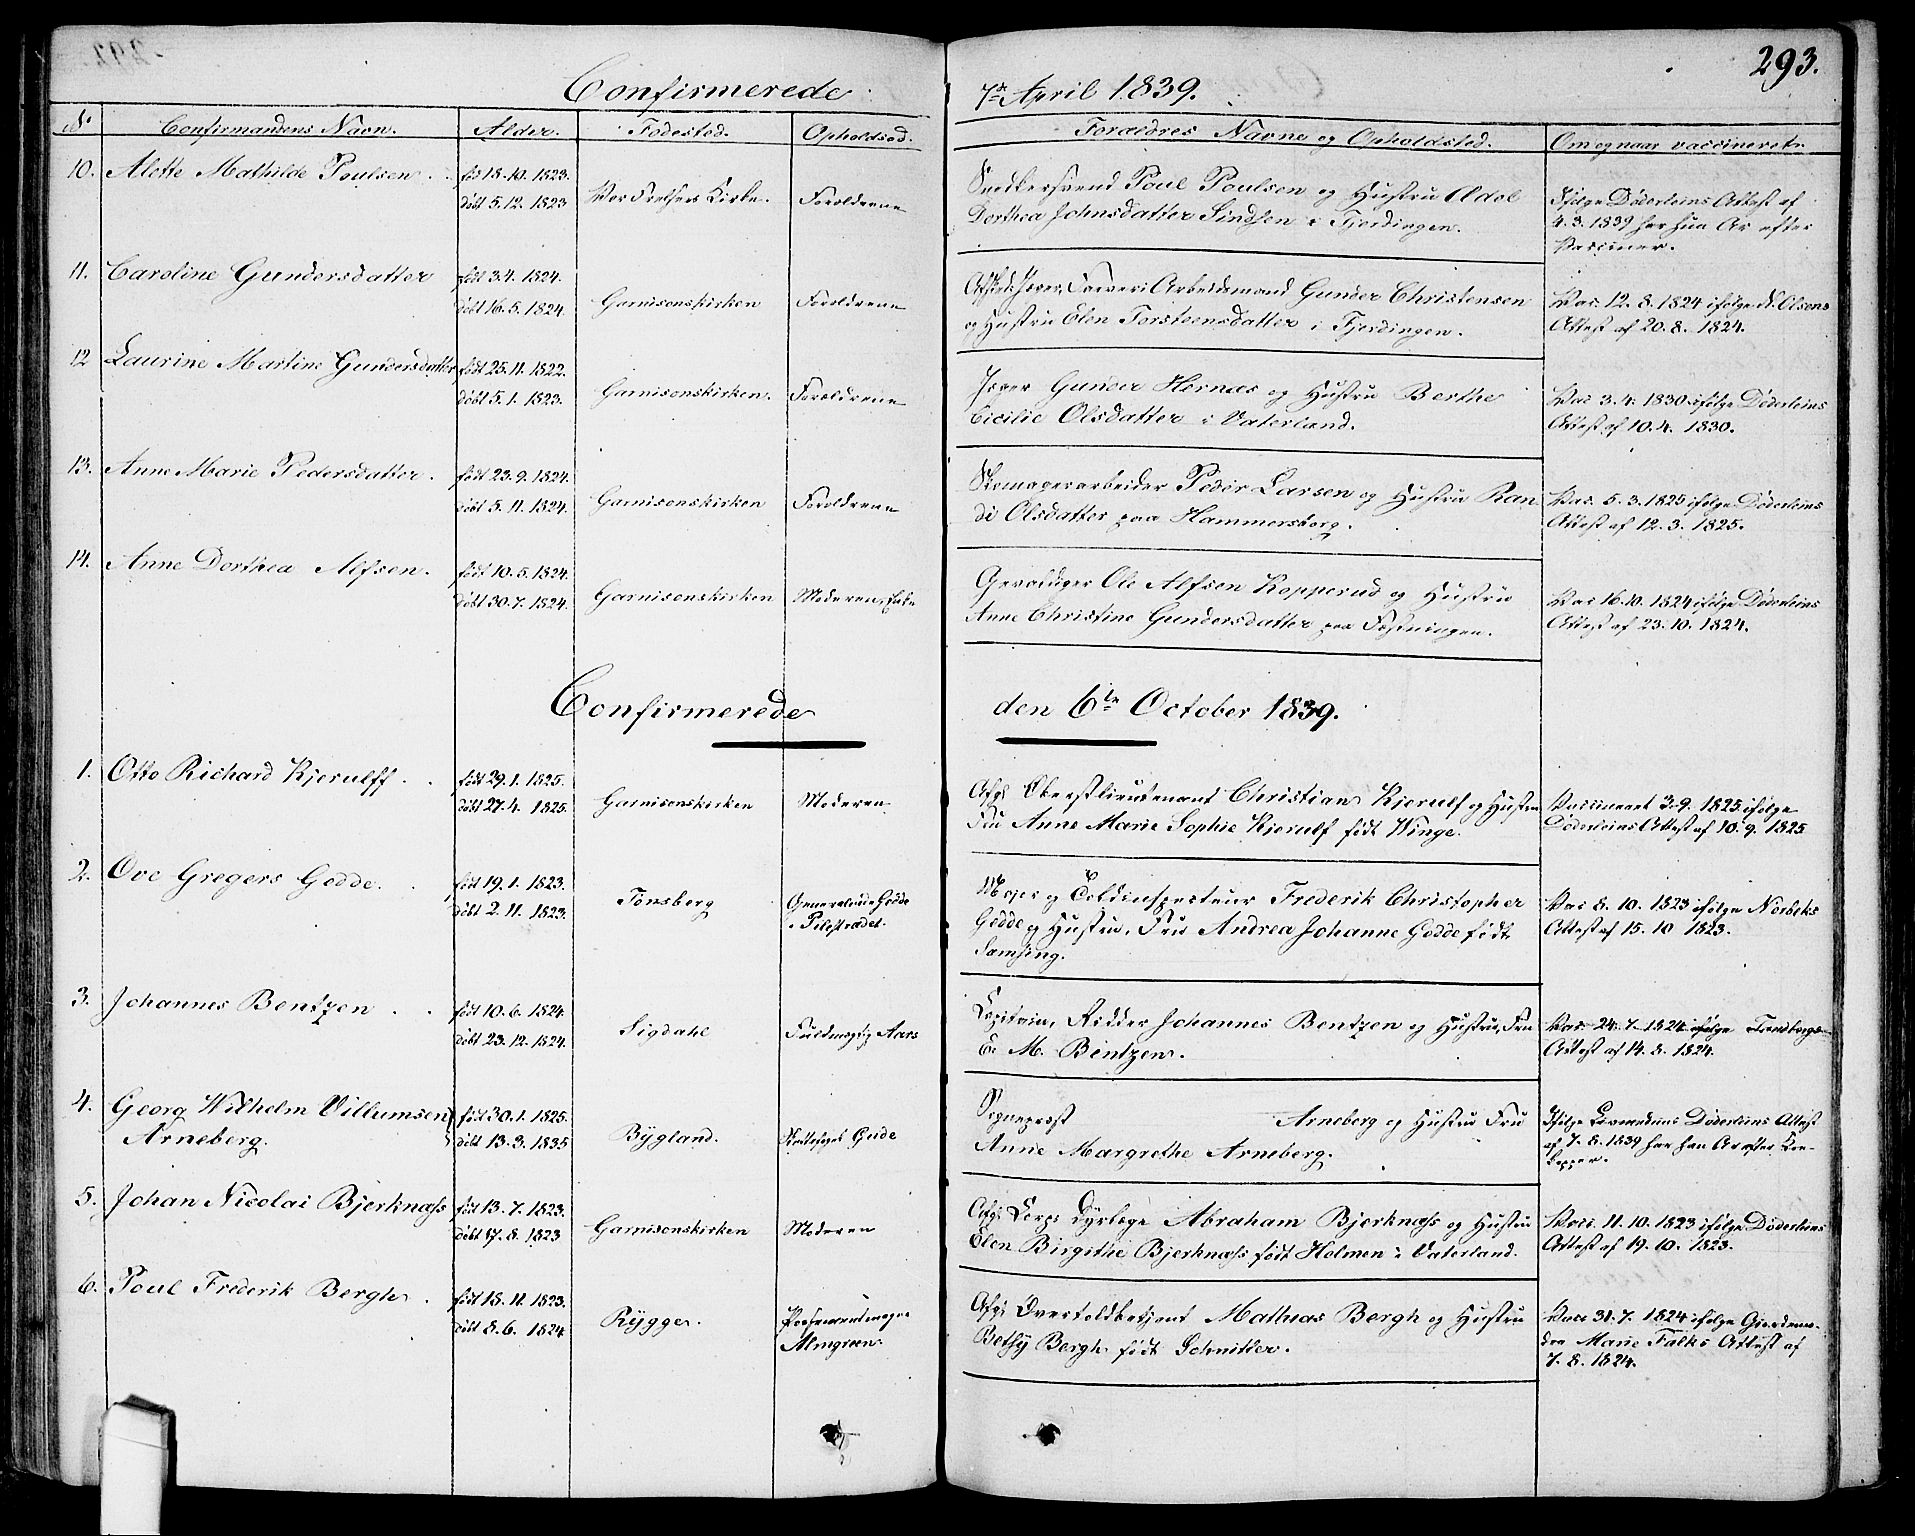 293.
Confirmerede 7de April 1839.
No Confirmandens Navn. Alder. Fødested. Opholdssd. Forældres Navne og Opholdsted. Om og naar vaccineret.
10. Alette Mathilde Poulsen. født 18.10. 1823. døbt 5.12. 1823 Vor Frelsers Kirke. Forældrene
Snedkersvend Poul Poulsen og Hustru Adel
Dorthea Johnsdatter Sindsen i Fjerdingen.
Ifølge Døderleins Attest af
4.3. 1839 har hun Ar efter
Vacciner.
11. Caroline Gundersdatter født 3.4. 1824. døbt 16.5. 1824. Garnisonskirken Forældrene
Gunder Christensen
og Hustru Elen Torsteensdatter i Fjerdingen.
Vac. 12. 8. 1824 ifølge N. Olsens
Attest af 20. 8. 1824.
12 Laurine Martine Gundersdatter født 25.11. 1822. døbt 5.1. 1823. Garnisonskirken. Forældrene
Jæger Gunder Hornæs og Hustru Berthe
Cicilie Olsdatter i Vaterland.
Vac. 3. 4. 1830 ifølge Døderleins
Attest af 10. 4. 1830.
13. Anne Marie Pedersdatter. født 23.9. 1824. døbt 5.11. 1824. Garnisonskirken Forældrene
Skomagerarbeider Peder Larsen og Hustru Ran
di Olsdatter paa Hammersborg.
Vac. 5. 3. 1825 ifølge Døderleins
Attest af 12. 3. 1825.
14. Anne Dorthea Alfsen. født 10.5. 1824. døbt 30.7. 1824. Garnisonskirken Moderen, Enke
Gevaldiger Ole Alfsen Kopperud og Hustru
Anne Christine Gundersdatter paa Fæstningen.
Vac. 16.10. 1824 ifølge Døderleins
Attest af 23. 10. 1824.
Confirmerede den 6te October 1839.
1. Otto Richard Kjerulff. født 29.1. 1825. døbt 27.4. 1825. Garnisonskirken Moderen
Afg. Oberstlieutenant Christian Kjerulf og Hustru
Fru Anne Marie Sophie Kjerulf født Winge.
Vaccineret 3.9. 1825 ifølge
Døderleins Attest af 10. 9. 1825
2. Ove Gregers Gedde. født 19.1. 1823. døbt 2.11. 1823. Tønsberg Generalinde Gedde
i Pilestrædet.
Major og Toldinspecteur Frederik Christopher
Gedde og Hustru, Fru Andrea Johanne Gedde født
Samsing.
Vac 8. 10. 1823 ifølge Norbeks
Attest af 15. 10 1823.
3. Johannes Bentzen. født 10.6. 1824 døbt 23.12. 1824. Sigdahl Fuldmægtig Aars
Capitain, Ridder Johannes Bentzen og Hustru, Fru
E. M. Bentzen.
Vac 24. 7. 1824 ifølge
Attest af 14. 8. 1824.
4. Georg Wilhelm Villumsen
Arneberg. født 30.1. 1825. døbt 13.3. 1835 Bÿgland. Gude
Sognepræst Arneberg og Hustru Fru
Anne Margrethe Arneberg.
Ifølge Døderleins Attest
af 7. 8. 1839 har han Ar efter Koe-
kopper.
5. Johan Nicolai Bjerknæss født 13.7. 1823. døbt 17.8. 1823 Garnisonskirken Moderen
Afg: Corps Dyrlæge Abraham Bjerknæss og Hustru
Elen Birgithe Bjerknæss født Holmen i Vaterland.
Vacc. 11. 10. 1823 ifølge Døderleins
Attest af 19. 10. 1823.
6. Poul Frederik Bergh. født 18.11. 1823. døbt 8.6. 1824 Rÿgge.
Almgreen.
Afg: Overtoldbetjent Mathias Bergh og Hustru
Bethÿ Bergh født Schnitler.
Vac 31. 7. 1824 ifølge Giordemo-
der Marie Falks Attest af
7. 8. 1824.